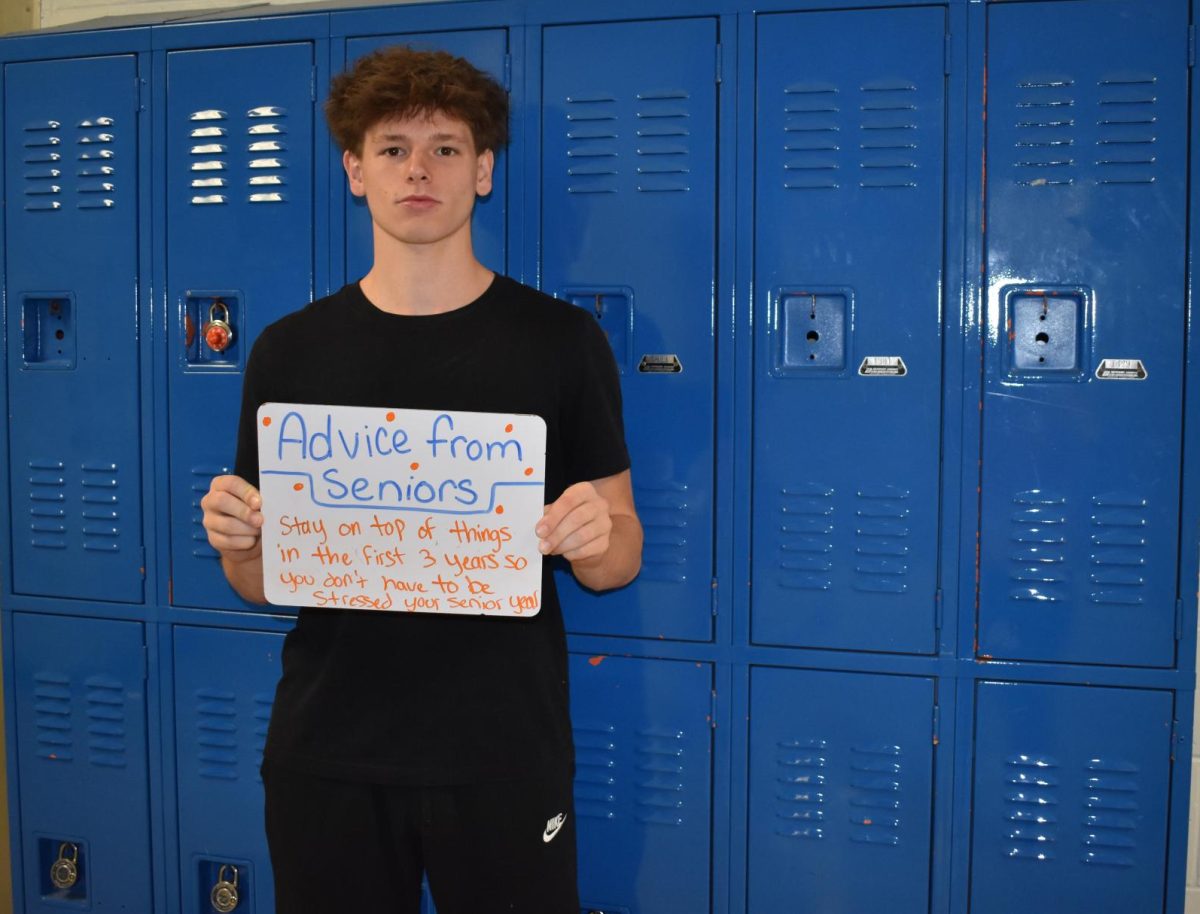 Advice from
Seniors
Stay on top of things
in the first 3 years so
you don't have to be
stressed your senior year
NIKE